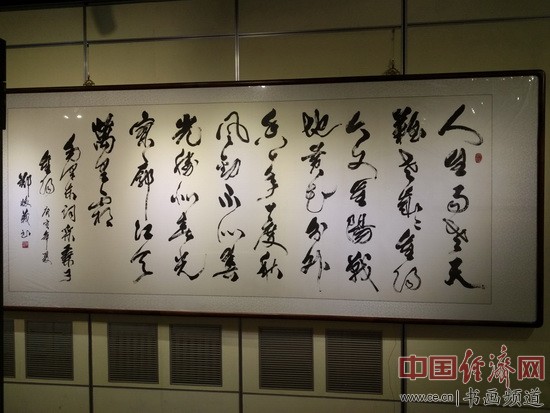 人生易老天
難老歲々重阳
今又重陽戰
地黄花分外
香一年一度秋
風劲不似春
光勝似春光
寥廓江天
萬里霜
毛泽东词采桑子
重阳 庚寅年夏
中国经济网
www.ce.cn 书画频道